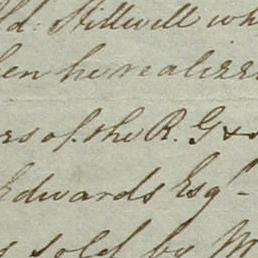 ld. Stillwell wh
en he realizi
rs of the R. G &
Edwards Esqr -
sold by M